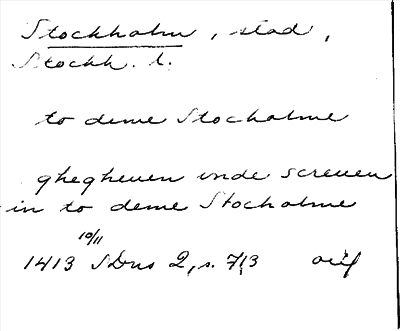 Stockholm, stad,
Stockh. l.
to deme Stocholme
ghegheuen vnde screuen
in to deme Stocholme
10/11
1413 SDns 2, s. 713 orig